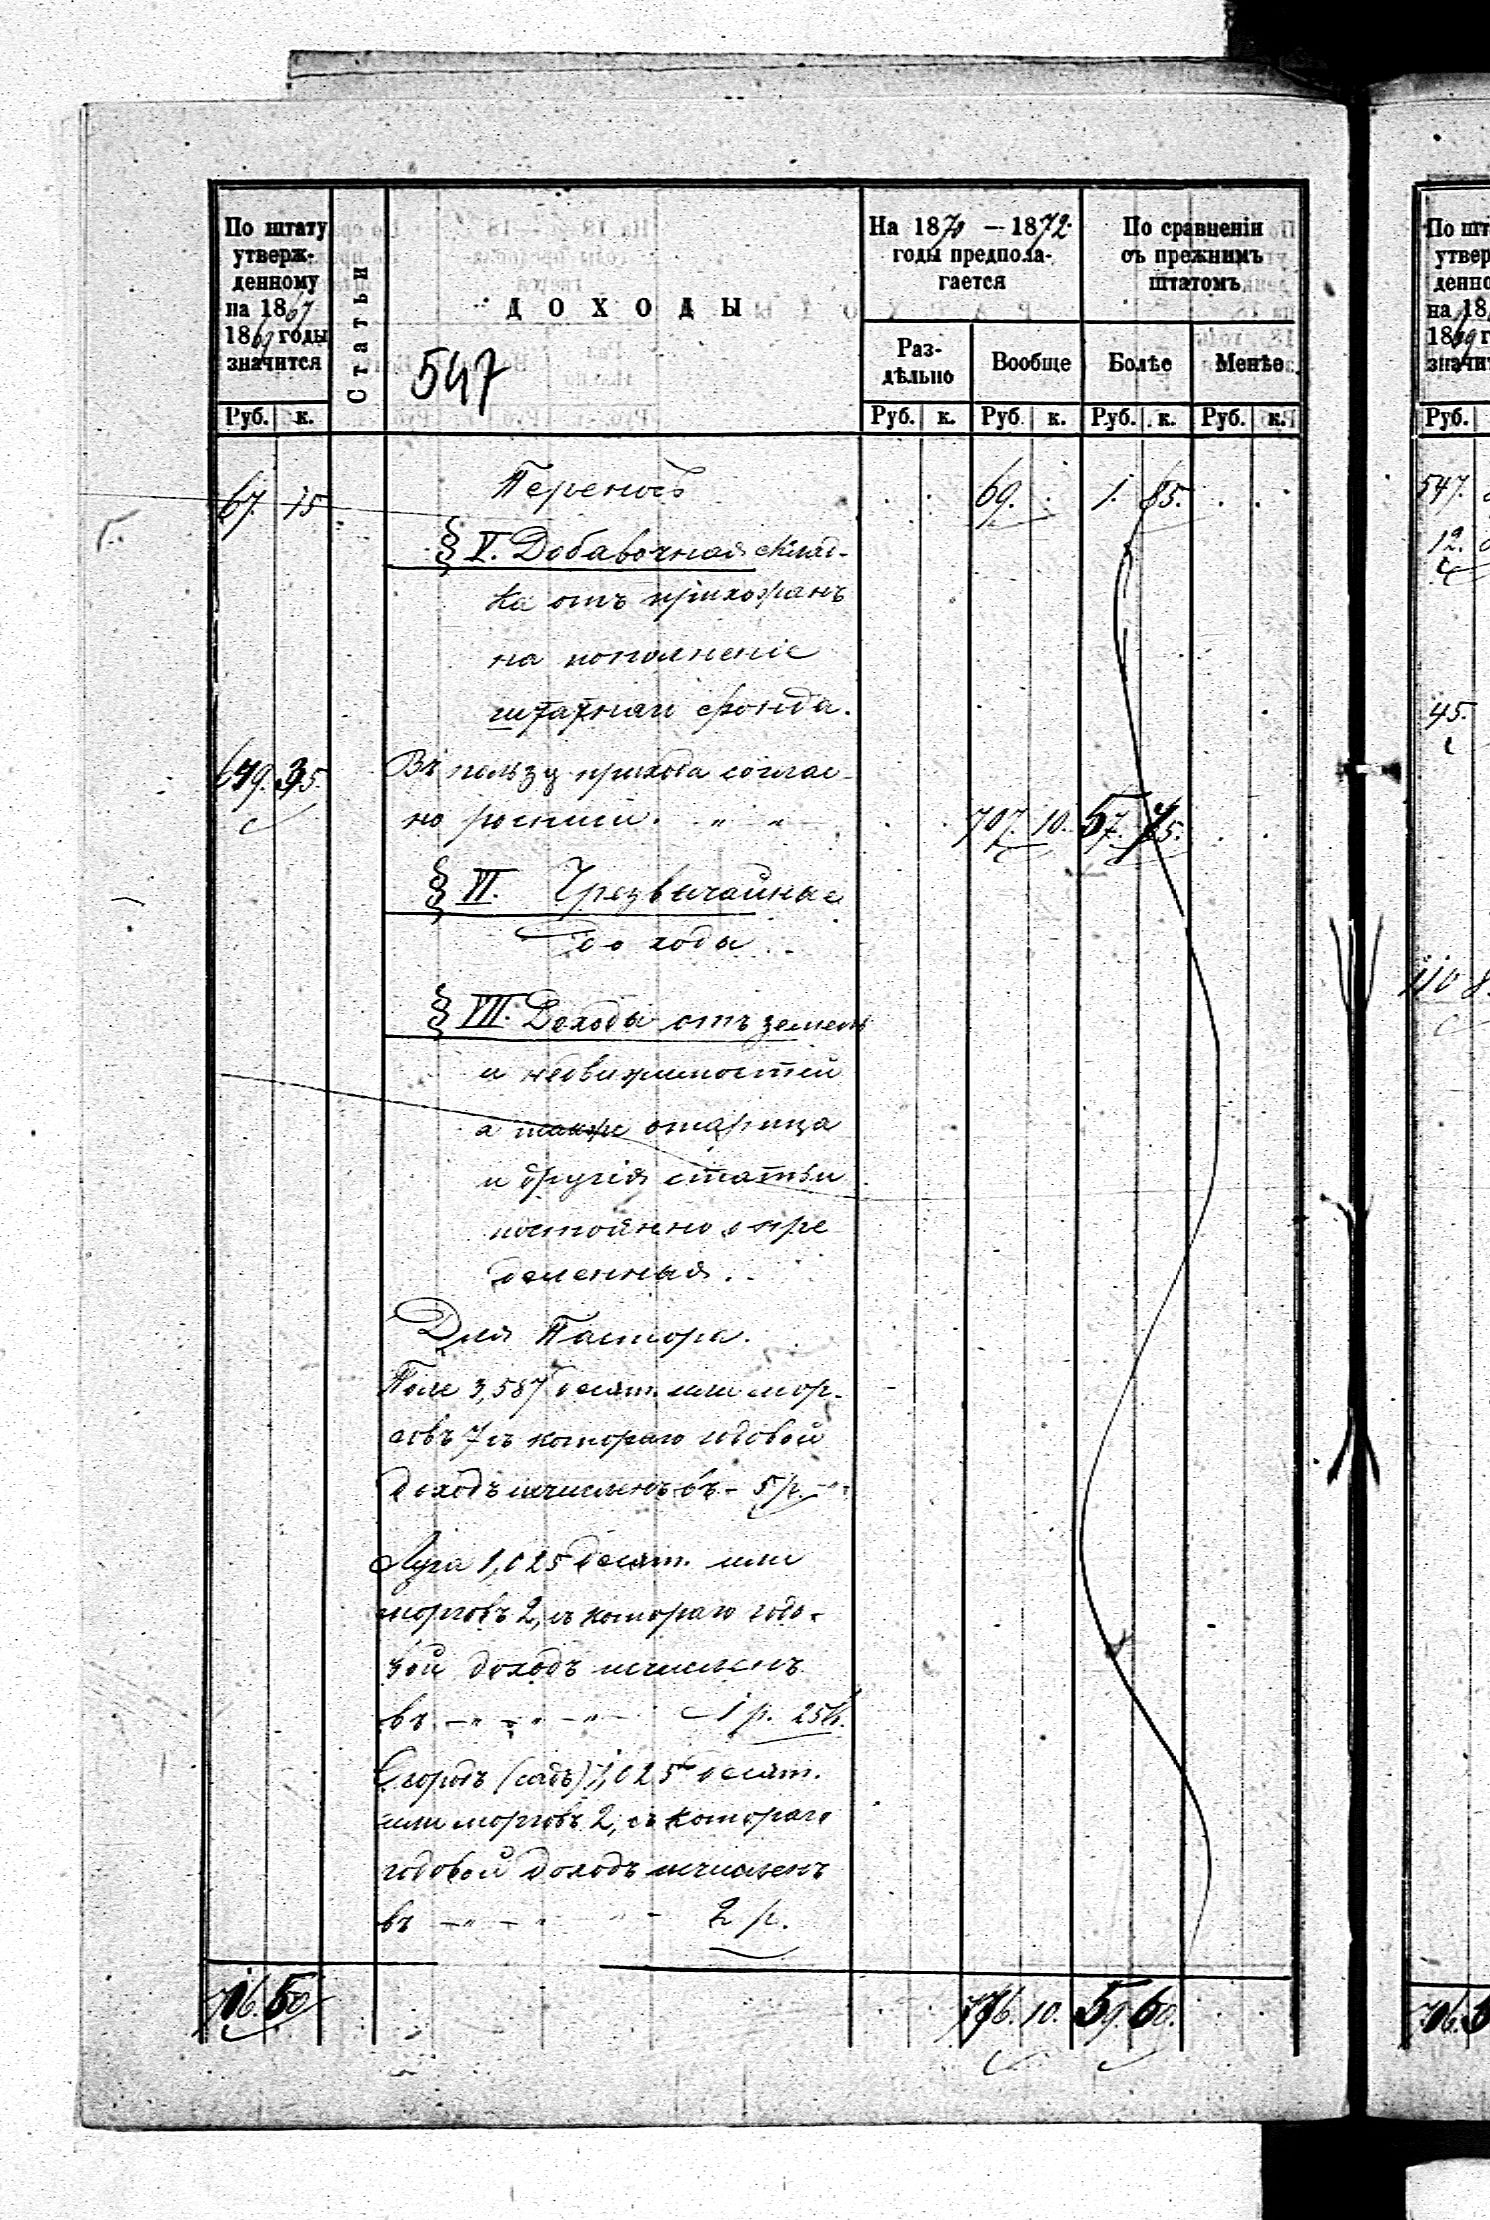 По штату утверж-денному на 1867 1869 годы значится
Статьи
ДОХОДЫ
547
На 1870 — 1872 годы предпола-гается
По сравненіи съ прежнимъ штатомъ
Раз-дѣльно
Вообще
Болѣе
Менѣе
Руб. к. Руб. к. Руб. к. Руб. к. Руб. к.
67. 15 Переносъ 69. 1. 85.
§ V. Добавочная склад-
ка отъ прихожанъ
на пополненіе
штатнаго фонда.
649. 35. Въ пользу прихода соглас-
но росписи. " " 707. 10. 57. 75.
§ VI. Чрезвычайные
доходы
§ VII. Доходы отъ земель
и недвижимостей
а также
и другія статьи
постоянно опре
деленныя.
Для Пастора.
Поле 3,587 десят. или мор-
говъ 7 съ котораго годовой
доходъ исчисленъ въ - 5 р. -
Луга 1,025 десят. или
морговъ 2, съ котораго годо-
вой доходъ исчисленъ
въ - " - " - " - 1 р. 25 к.
Огородъ (садъ) 1,025 десят.
или морговъ 2, съ котораго
годовой доходъ исчисленъ
въ - " - " " - 2 р.
716. 50 776. 10. 59. 60.
По шт
утвер
денно
на 18
1869 г
значит
Руб.
547.
12.
45.
110 8